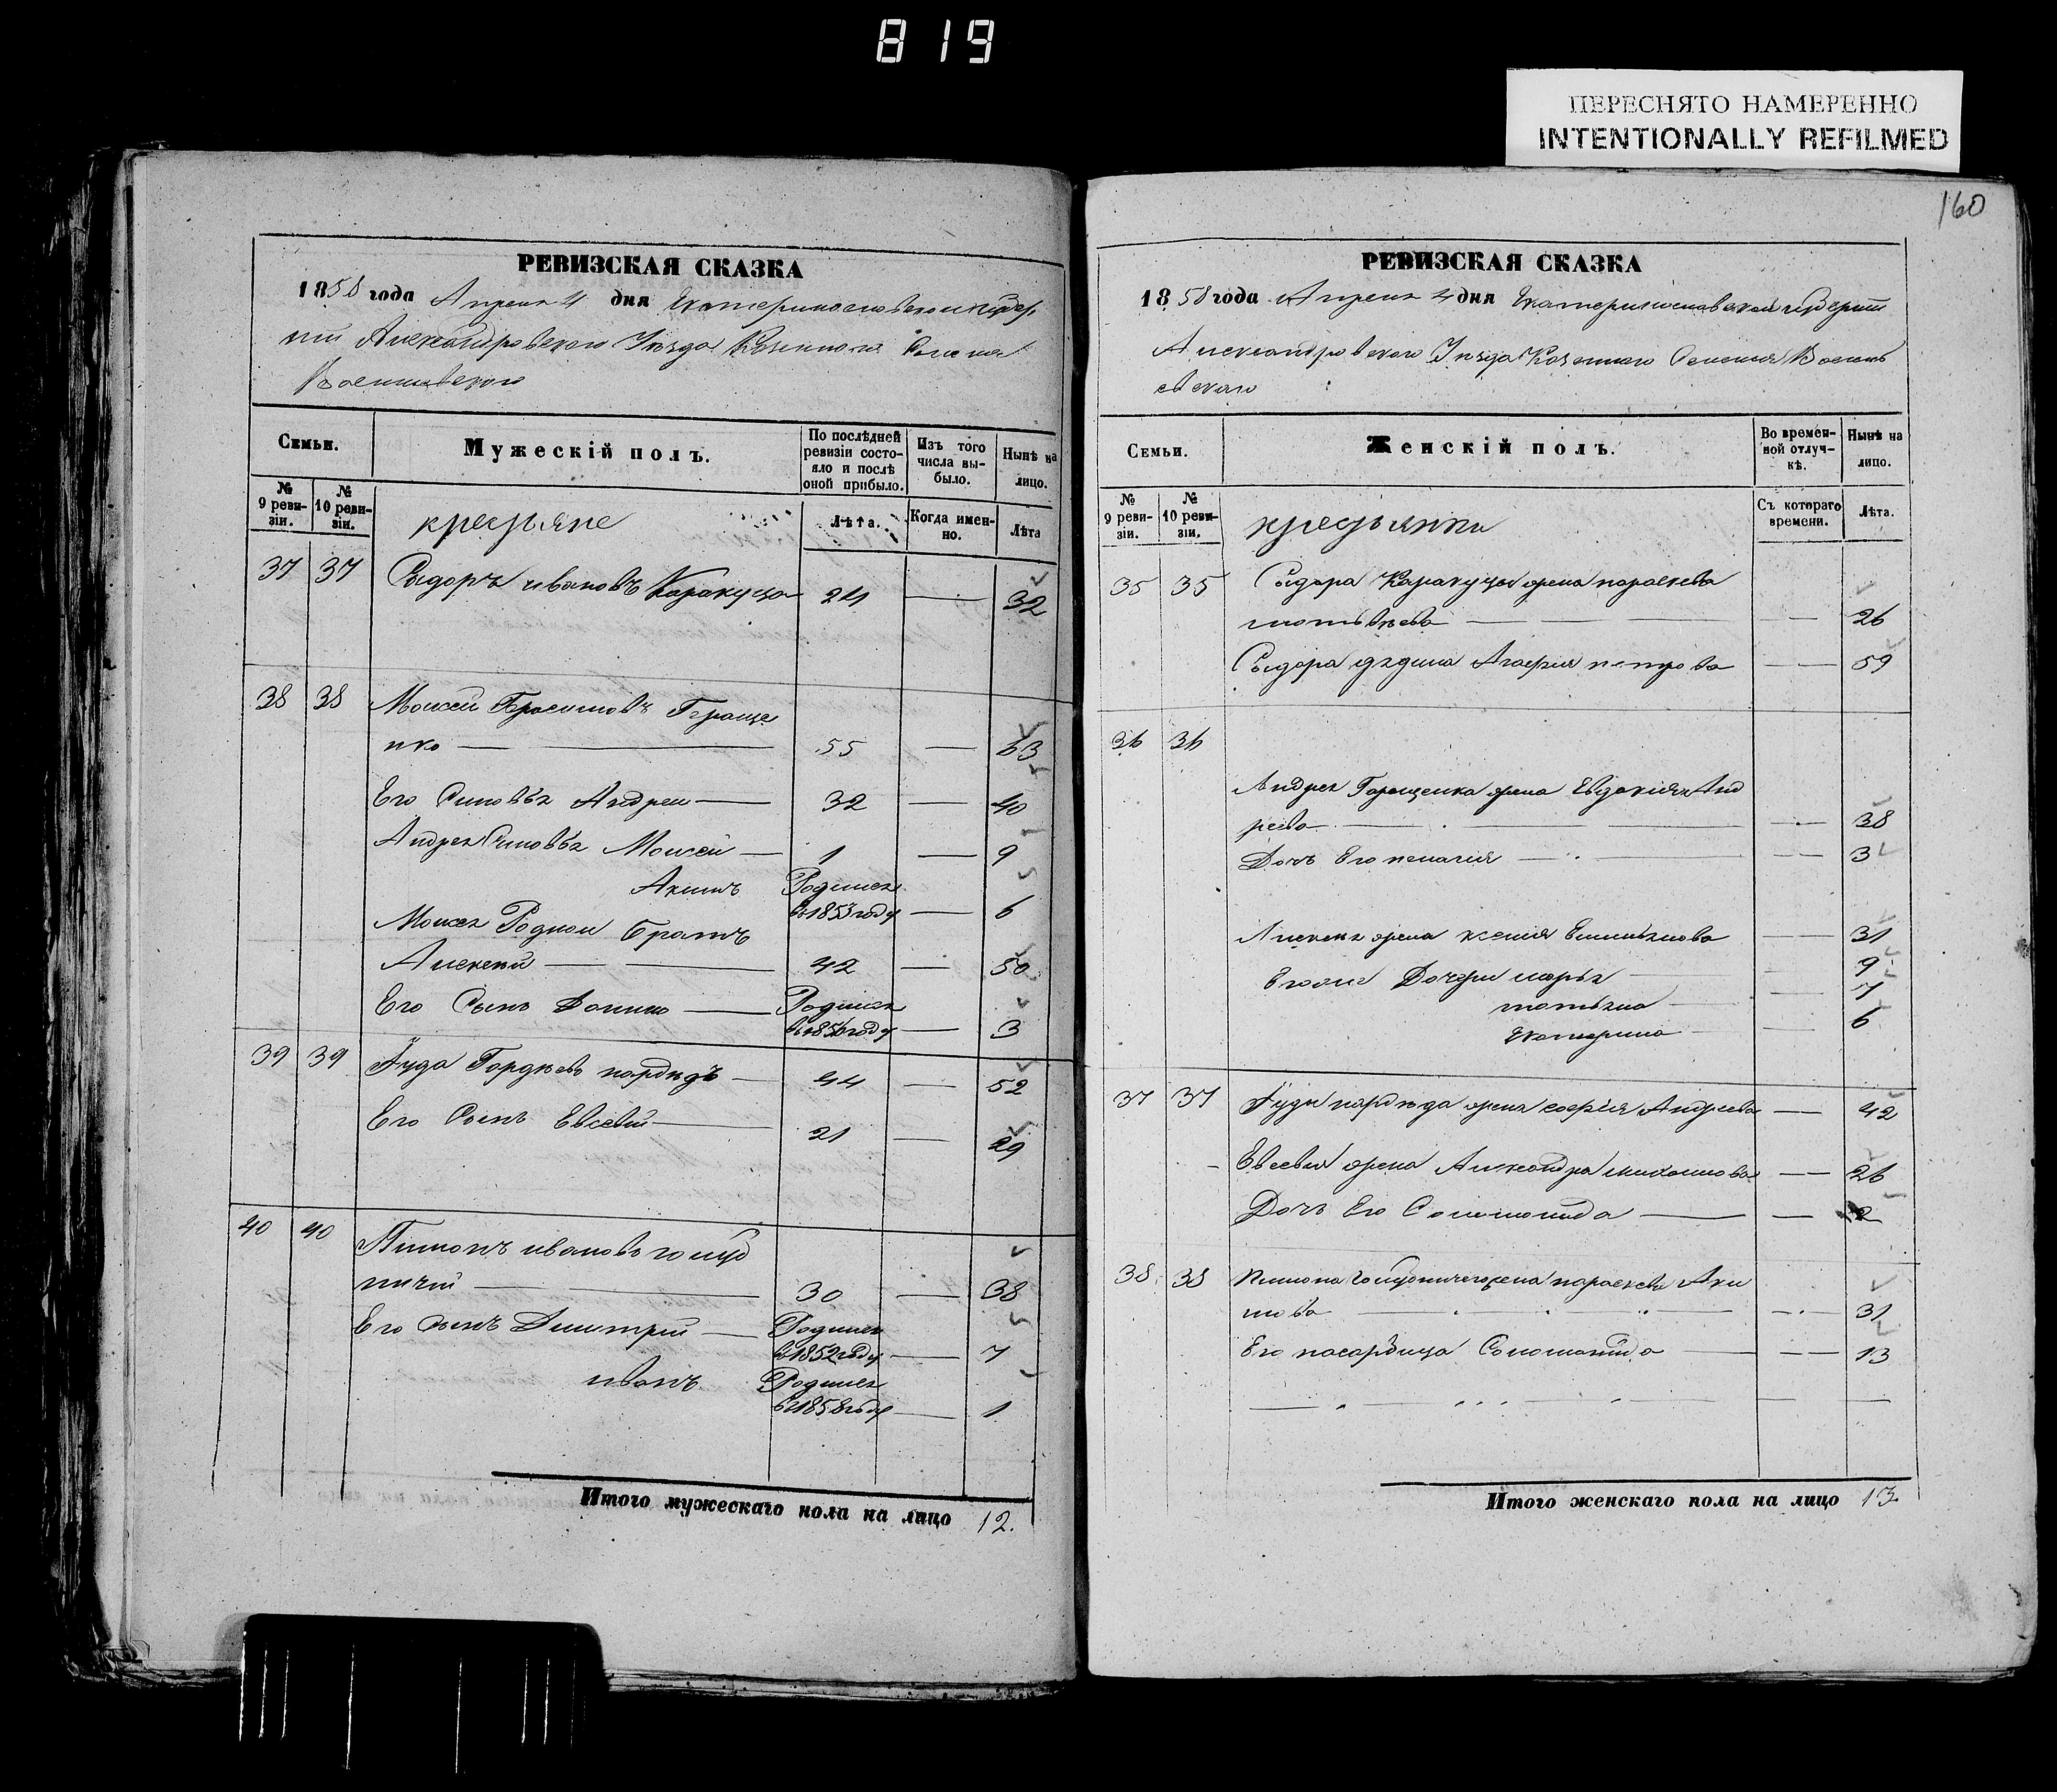 819
ПЕРЕСНЯТО НАМЕРЕННО
INTENTIONALLY REFILMED
160
РЕВИЗСКАЯ СКАЗКА
1858 года Апреля 4 дня Екатеринославской губер
нии Александровского Уезда Казенного Селения
РЕВИЗСКАЯ СКАЗКА
1858 года Апреля 4 дня Екатеринославской губернии
Александровского Уезда Казенного Селения
Семьи.
Мужескій полъ.
По послѣдней ревизіи состояло и послѣ оной прибыло.
Изъ того числа выбыло.
Нынѣ на лицо.
№ 9 ревизіи.
№ 10 ревизіи.
крестьяне
Лѣта.
Когда именно.
Лѣта
37 37 Сыдоръ ивановъ Каракуца 24 — 32
38 38 Моисей Герасимовъ Гераще
нко — — 55 — 63
Его Сыновья Андреи — 32 — 40
Андрея Сыновья Моисей — 1 — 9
Акимъ Родился
въ 1853 году — 6
Моисея Родной братъ
Алексей — — 42 — 50
Его Сынъ Данило — Родился
въ 1856 году — 3
39 39 Иуда Гордеевъ — 44 — 52
Его Сынъ Евсевий — 21 — 29
40 40 Пимонъ ивановъ голуб
ничий — 30 — 38
Его сынъ Димитрий — Родился
въ 1852 году — 7
иванъ Родился
въ 1858 году — 1
Итого мужескаго пола на лицо 12.
Семьи.
Женскій полъ.
Во временной отлучкѣ.
Нынѣ на лицо.
№ 9 ревизіи.
№ 10 ревизіи.
крестьянки
Съ котораго времени.
Лѣта.
35 35 Сыдора Каракуцы жена параскева
матвеева — — — — — 26
Сыдора дядина Агафия петрова — — 59
36 36
Андрея Геращенка жена Евдокия Анд
реева — — — — — 38
Дочь Его пелагия — — — — 3
Алексея жена ксения Емилянова — — 31
Его же Дочери марья — — 9
татьяна — — 7
Екатерина — — 6
37 37 Иуды жена софия Андреева — 42
Евсевия жена Александра — 26
Дочь Его Соломонида — — 2
38 38 Пимона голубничего жена параскева Аки
мова — — — — — 31
Его Соломонида — — — 13
Итого женскаго пола на лицо 13.